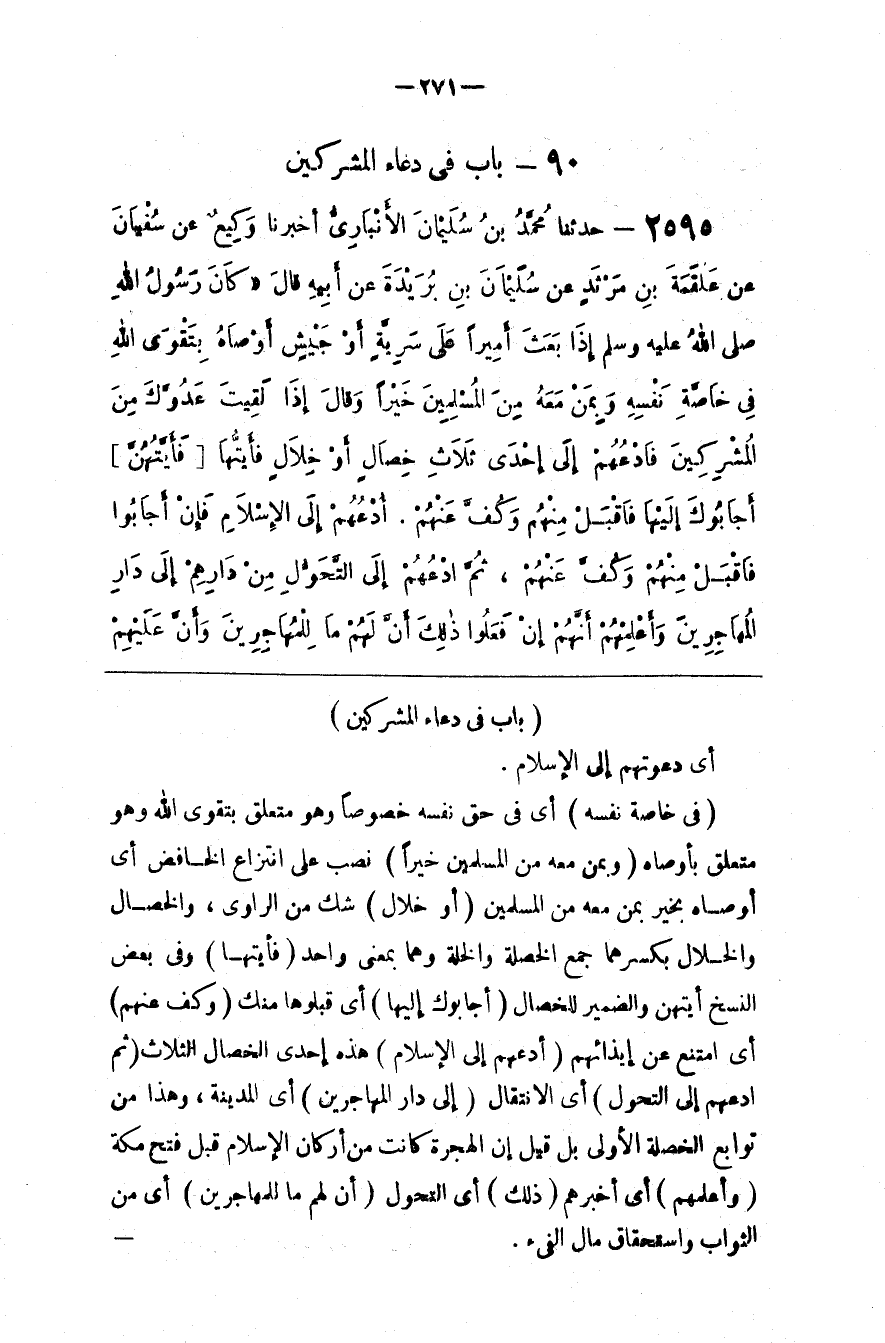 —٢٧١—
٩٠ — باب فى دعاء المشركين
٢٥٩٥ — حدثنا مُحمَّدُ بنُ سُلَيْمانَ الأَنْبَارِىُّ أخبرنا وَكِيعٌ عن سُفْيَانَ
عن عَلْقَمَةَ بنِ مَرْثَدٍ عن سُلَيْمَانَ بنِ بُرَيْدَةَ عن أَبِيهِ قالَ « كَانَ رَسُولُ اللهِ
صلى اللهُ عليه وسلم إِذَا بَعَثَ أَمِيراً عَلَى سَرِيَّةٍ أَوْ جَيْشٍ أَوْصَاهُ بِتَقْوَى اللهِ
فِى خَاصَّةِ نَفْسِهِ وَبِمَنْ مَعَهُ مِنَ المُسْلِمِينَ خَيْراً وَقالَ إِذَا لَقِيتَ عَدُوَّكَ مِنَ
المُشْرِكِينَ فَادْعُهُمْ إِلَى إِحْدَى ثَلَاثِ خِصَالٍ أَوْ خِلَالٍ فَأَيَّتُهَا [ فَأَيَّتُهُنَّ ]
أَجَابُوكَ إِلَيْهَا فَاقْبَـلْ مِنْهُم وَكُفَّ عَنْهُمْ . أُدْعُهُمْ إِلَى الإِسْلَامِ فَإِنْ أَجَابُوا
فَاقْبَـلْ مِنْهُمْ وَكُفَّ عَنْهُمْ ، ثُمَّ ادْعُهُمْ إِلَى التَّحَوُّلِ مِنْ دَارِهِمْ إِلَى دَارِ
المُهَاجِرِينَ وَأَعْلِمْهُمْ أَنَّهُمْ إِنْ فَعَلُوا ذٰلِكَ أَنَّ لَهُمْ مَا لِلْمُهَاجِرِينَ وَأَنَّ عَلَيْهِمْ
( باب فى دعاء المشركين )
أى دعوتهم إلى الإسلام .
( فى خاصة نفسه ) أى فى حق نفسه خصوصاً وهو متعلق بتقوى الله وهو
متعلق بأوصاه ( وبمن معه من المسلمين خيراً ) نصب على انتزاع الخـافض أى
أوصـاه بخير بمن معه من المسلمين ( أو خلال ) شك من الراوى ، والخصـال
والخـلال بكسرهما جمع الخصلة والخلة وهما بمعنى واحد ( فأيتهـا ) وفى بعض
النسخ أيتهن والضمير للخصال ( أجابوك إليها ) أى قبلوها منك ( وكف عنهم )
أى امتنع عن إيذائهم ( أدعهم إلى الإسلام ) هذه إحدى الخصال الثلاث ( ثم
ادعهم إلى التحول ) أى الانتقال ( إلى دار المهاجرين ) أى المدينة ، وهذا من
توابع الخصلة الأولى بل قيل إن الهجرة كانت من أركان الإسلام قبل فتح مكة
( وأعلمهم ) أى أخبرهم ( ذلك ) أى التحول ( أن لهم ما للمهاجرين ) أى من
الثواب واستحقاق مال الفىء . —